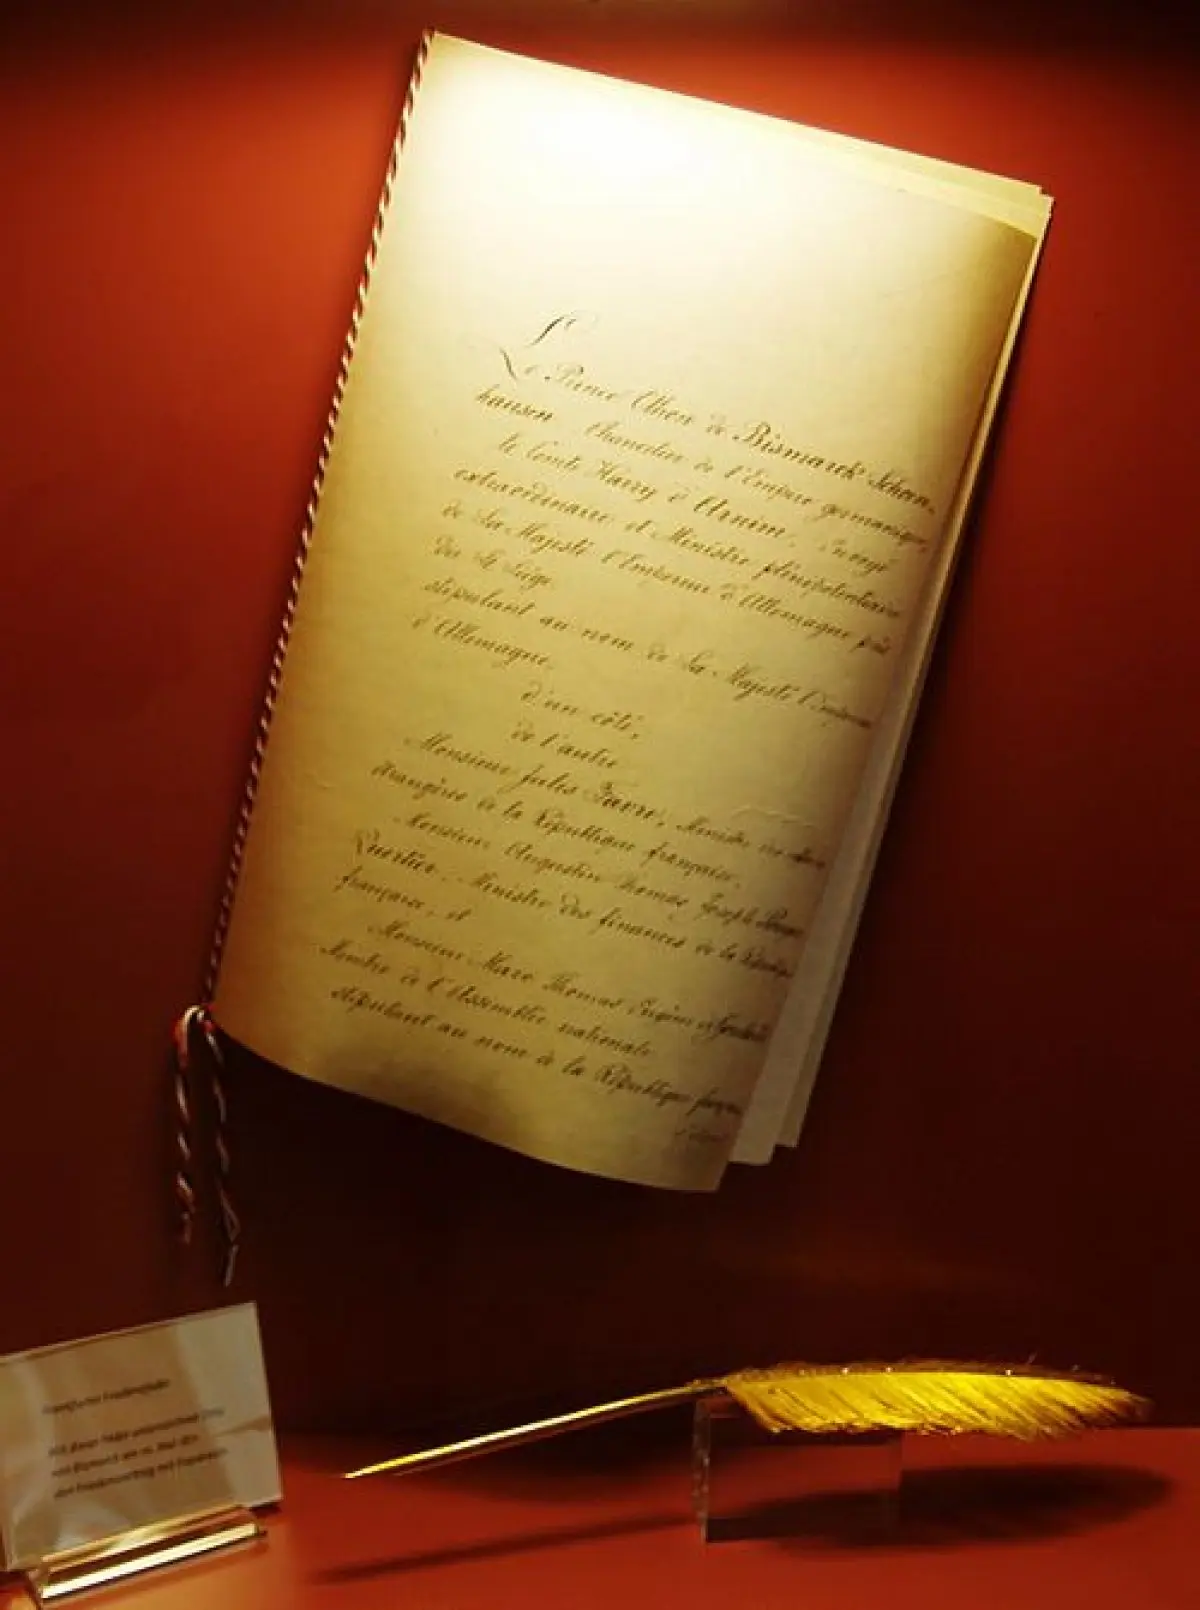 Le Prince Othon de Bismarck Schoen-
hausen Chancelier de l'Empire germanique,
le Comte Harry d'Arnim, Envoyé
extraordinaire et Ministre plénipotentiaire
de Sa Majesté l'Empereur d'Allemagne près
du St Siège
stipulant au nom de Sa Majesté l'Empereur
d'Allemagne,
d'un côté,
de l'autre
Monsieur Jules Favre, Ministre
étrangères de la République française,
Monsieur Augustin Thomas Joseph Pouyer
Quertier, Ministre des finances de la République
française, et
Monsieur Marc Thomas Eugène de Goulard
Membre de l'Assemblée nationale
stipulant au nom de la République française
Frankfurter Friedensfeder
Mit dieser Feder unterzeichnet
von Bismarck am 10. Mai 1871
den Friedensvertrag mit Frankreich